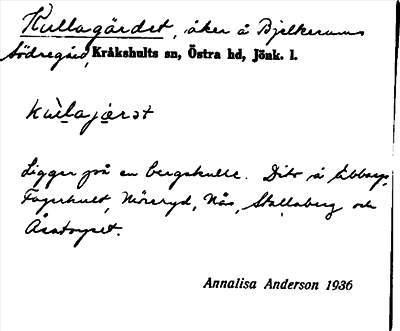 Kullagärdet, åker å Bjelkerums
Södregård, Kråkshults sn, Östra hd, Jönk. l.
kùlajærət
Ligger på en bergskulle. Dito å Ebbarp,
Fagerhult, Möreryd, Nås, Stallaberg och
Åsatorpet.
Annalisa Anderson 1936